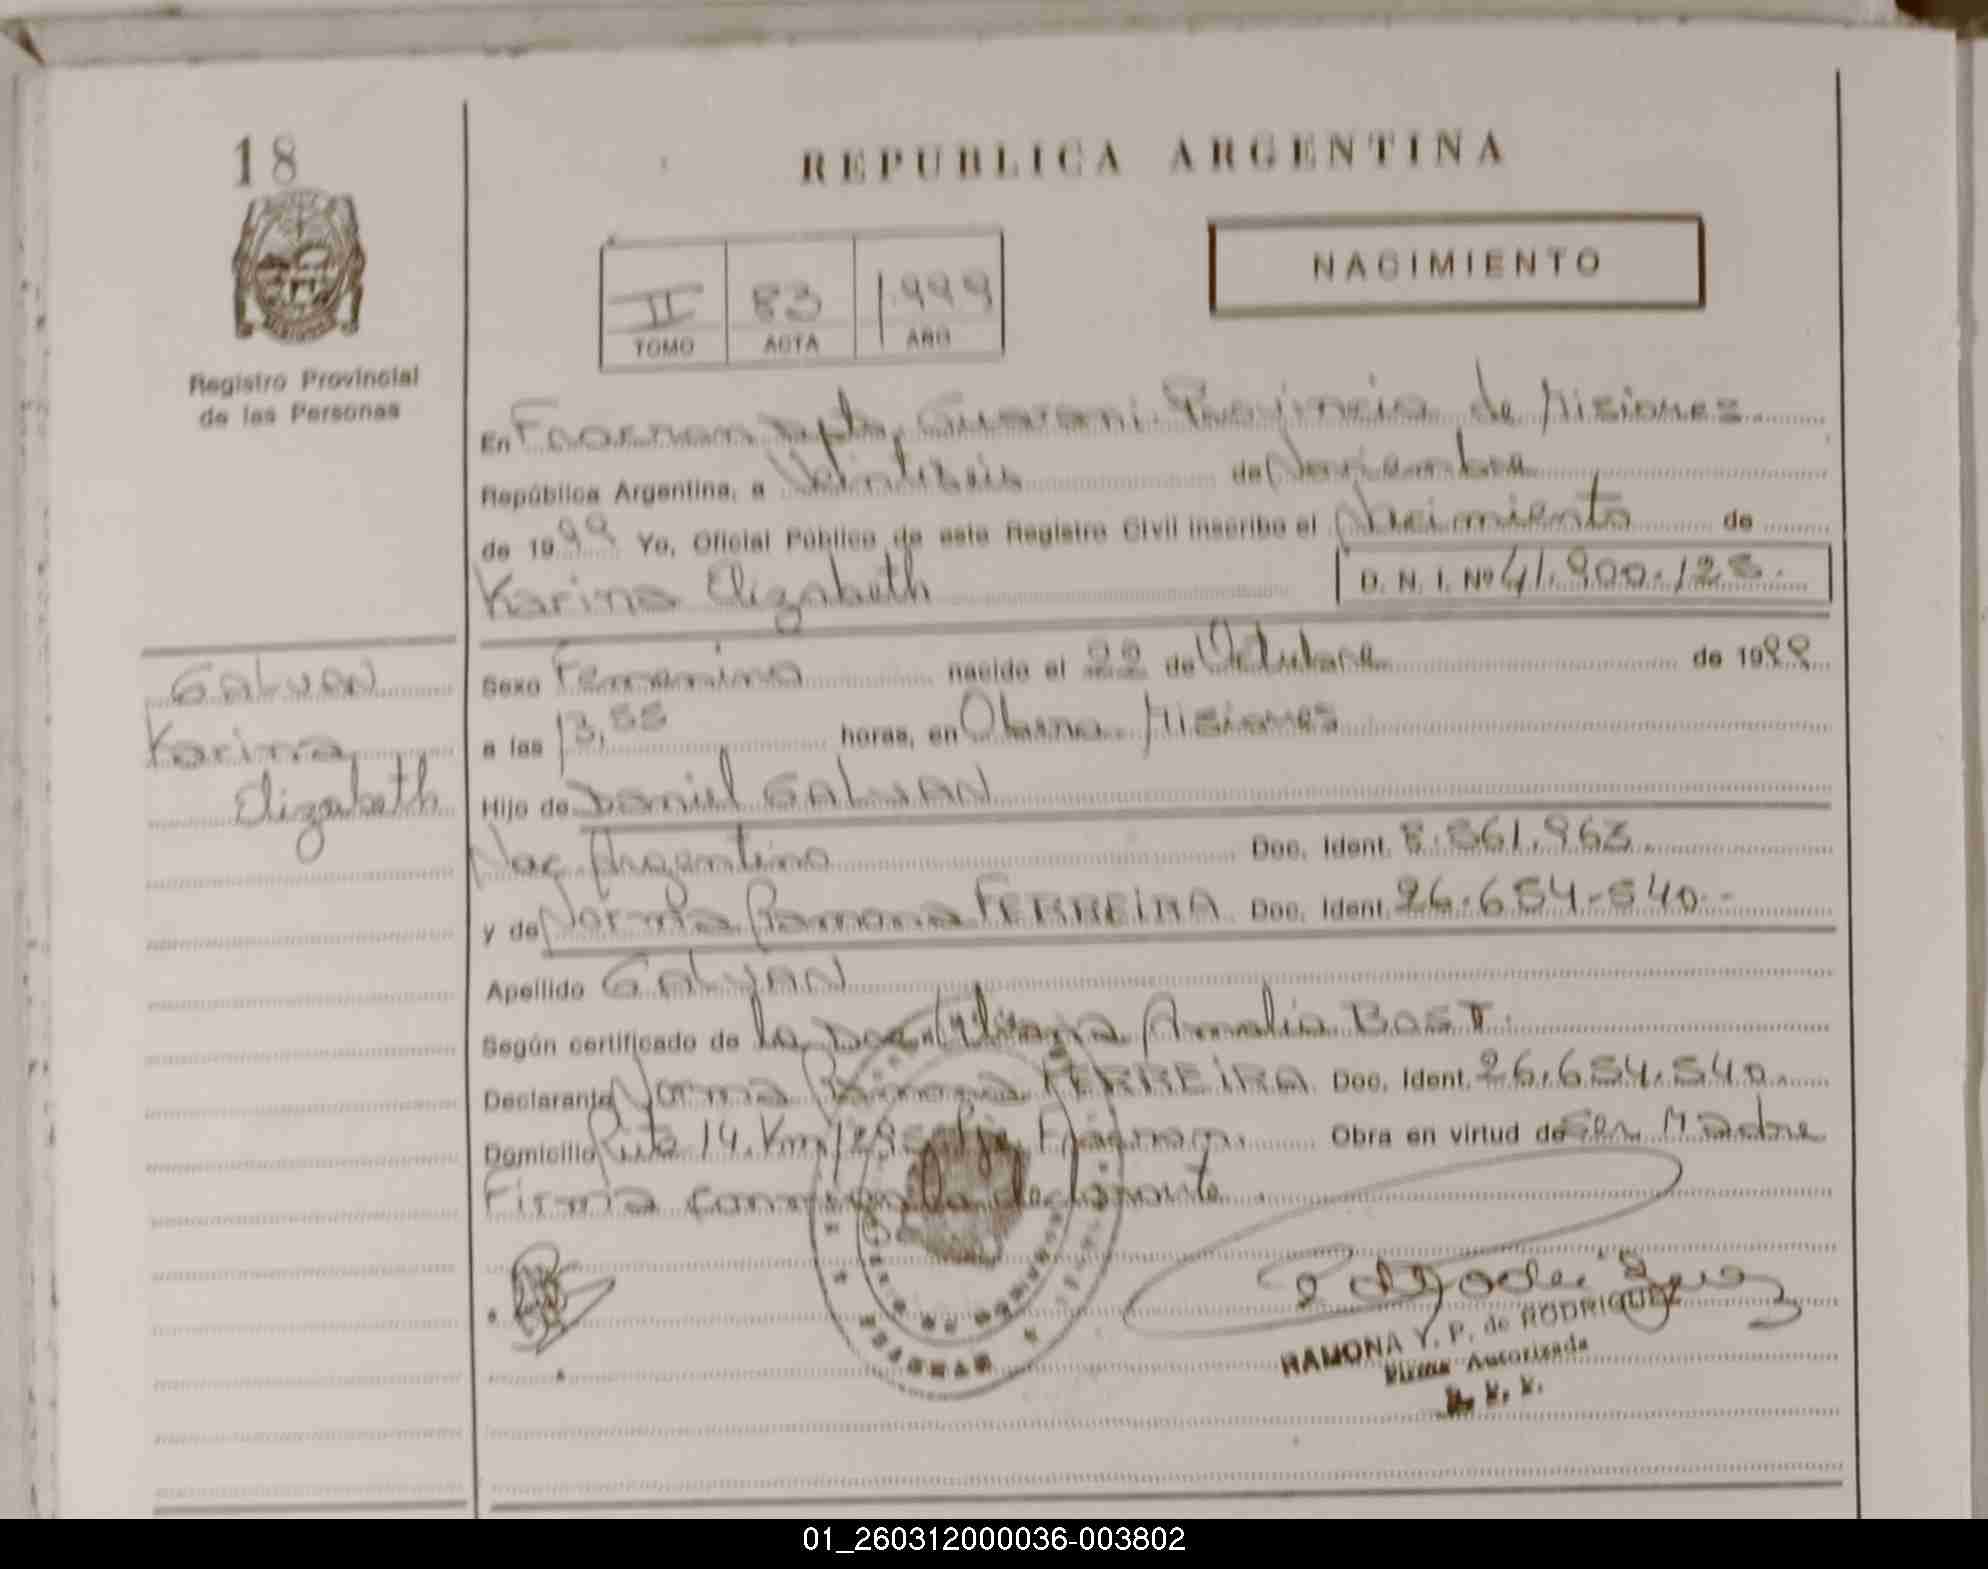 18
REPUBLICA ARGENTINA
NACIMIENTO
II 83 1999
TOMO ACTA AÑO
Registro Provincial
de las Personas
En Fracran Dpto. Guarani. Provincia de Misiones
República Argentina, a Veintiseis de Noviembre
de 1999 Yo, Oficial Público de este Registro Civil inscribo el Nacimiento de
Karina Elizabeth D. N. I. Nº 41.900.125.
GALVAN
Karina
Elizabeth
Sexo Femenino nacido el 22 de Octubre de 1999
a las 13,55 horas, en Obera Misiones
Hijo de Daniel GALVAN
Nac. Argentino Doc. Ident. 8.561.963.
y de Norma Ramona FERREIRA Doc. Ident. 26.654.540.-
Apellido GALVAN
Según certificado de la Amalia BAST.
Declarante Norma Ramona FERREIRA Doc. Ident. 26.654.540.
Domicilio Ruta 14. Km Fracran. Obra en virtud de ser Madre
Firma conmigo la declarante.
RAMONA Y. P. de RODRIGUEZ
Firma Autorizada
01_260312000036-003802